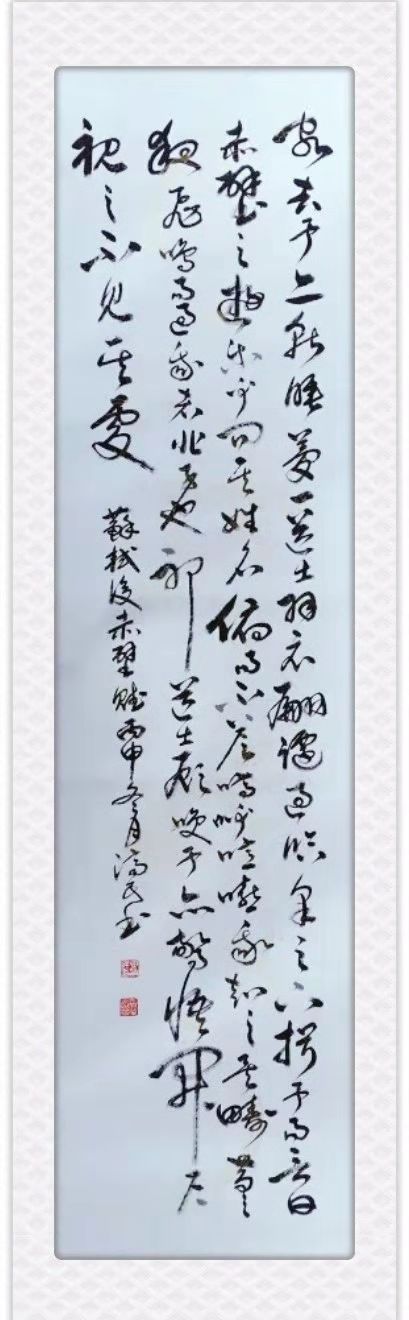 客去予亦就睡夢一道士羽衣翩躚過臨皋之下揖予而言曰
赤壁之遊樂乎問其姓名俯而不答嗚呼噫嘻我知之矣疇昔之
夜飛鳴而過我者非子也邪道士顧咲予亦驚悟開戶
視之不見其處
蘇軾後赤壁賦丙申冬月民書